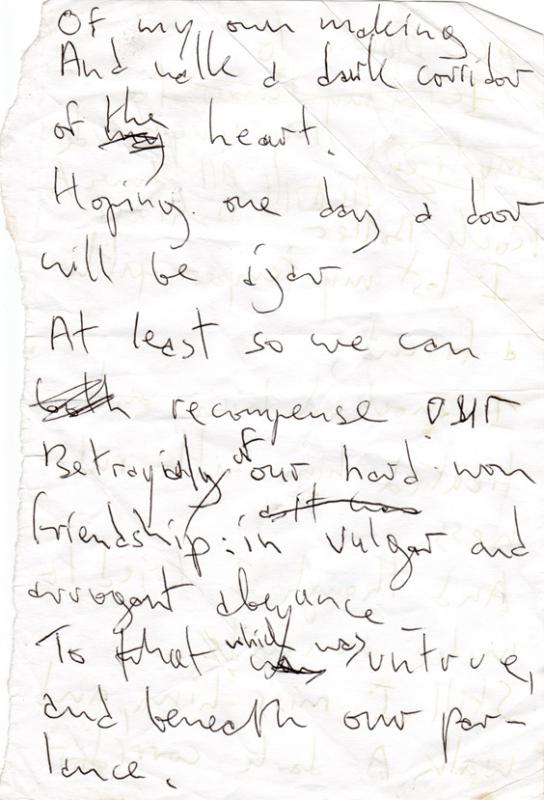 Of my own making
And walk a dark corridor
of the heart.
Hoping one day a door
will be ajar
At least so we can
recompense our
Betrayal of our hard won
friendship: in vulgar and
arrogant abeyance
To that which was untrue,
and beneath our par-
lance.